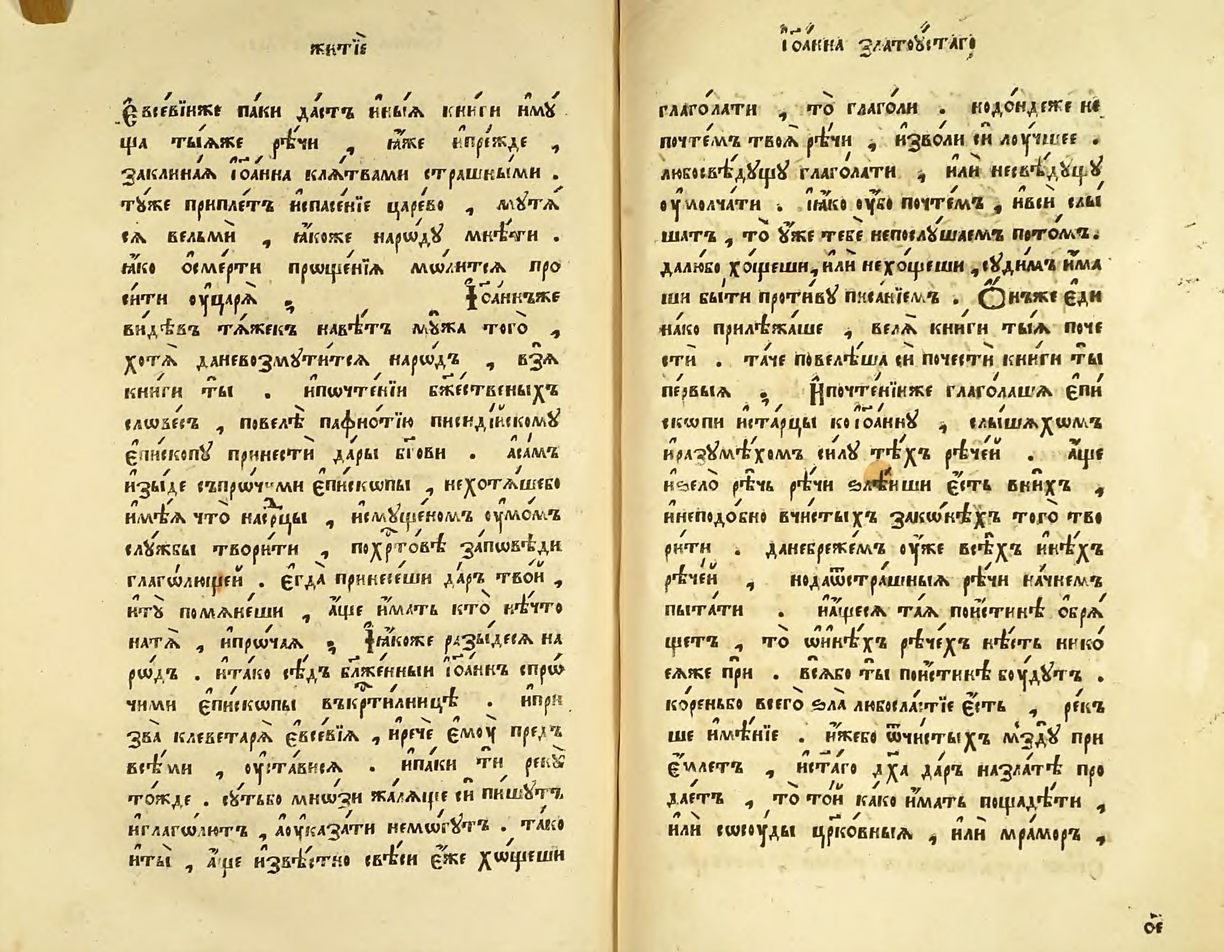 житїѐ
Є҆всевїиже па́ки да́стъ и҆ны́ѧ кни́ги и҆мꙋ́
ща ты́ѧже рѣ́чи , ꙗ҆́же и҆пре́жде ,
заклина́ѧ і҆ѡа́нна клѧ́твами стра́шными .
тꙋ́же приплета̀ и҆спасе́нїе ца́рево , мꙋтѧ́
сѧ вельмѝ , ꙗ҆́коже наро́дꙋ мнѣ́ти .
ꙗ҆́ко ѡ҆сме́рти проще́нїѧ мо́литсѧ про
си́ти ᲂу҆царѧ̀ ; І҆ѡа́ннъже
ви́дѣвъ тѧ́жекъ навѣ́тъ мꙋ́жа того̀ ,
хотѧ̀ даневозмꙋти́тсѧ наро́дъ , взѧ̀
кни́ги ты̀ . и҆почте́нїи бж҃е́ственыхъ
слове́съ , повелѣ̀ пафнѡ́тїю писиді́йскомꙋ
є҆пи́скопꙋ принестѝ да́ры бг҃ови . а҆са́мъ
и҆зы́де съпро́чими є҆пи́скопы , нехотѧ́шебо
и҆мѣ́ѧ что̀ насе́рцы , и҆смꙋще́номъ ᲂу҆мо́мъ
слꙋ́жбы твори́ти , похрⷭ҇то́вѣ за́повѣди
глаго́лющей . є҆гда̀ принесе́ши да́ръ тво́й ,
и҆тꙋ̀ помѧне́ши , а҆́ще и҆́мать кто̀ нѣ́что
натѧ̀ , и҆про́чаѧ ; Ꙗ҆́коже разы́десѧ на
ро́дъ . и҆та́ко сѣ́дъ бл҃же́нныи і҆ѡа́ннъ спро́
чими є҆пи́скопы въкр҃ти́лницѣ . и҆при
зва̀ клеветарѧ̀ є҆все́вїѧ , и҆речѐ є҆мᲂу̀ предъ
всѣ́ми , ᲂу҆ста́висѧ . и҆па́ки тѝ рекꙋ̀
то́жде . сꙋ́тьбо мно́зи жалѧ́ще сѝ пи́шꙋтъ
и҆глаго́лютъ , а҆ᲂу҆каза́ти немо́гꙋтъ . та́ко
и҆ты̀ , а҆́ще и҆звѣ́стно свѣ́си є҆́же хо́щеши
І҆ѡа́нна златоꙋ́стаго
глаго́лати , то̀ глаго́ли . нодо́ндеже не
почте́мъ твоѧ̀ рѣ́чи , и҆зво́ли сѝ лᲂу́чшее .
любосвѣ́дꙋщꙋ глаго́лати , и҆лѝ несвѣ́дꙋщꙋ
ᲂу҆молча́ти . ꙗ҆́ко ᲂу҆бо почте́мъ , и҆всѝ слы́
шатъ , то̀ ᲂу҆́же тебѐ непослꙋ́шаемъ пото́мъ .
далю́бо хо́щеши , и҆лѝ нехо́щеши , сꙋди́мъ и҆́ма
ши бы́ти проти́вꙋ писа́нїемъ . Ѻ҆́нъже є҆ди
на́ко прилѣжа́ше , велѧ̀ кни́ги ты́ѧ поче
стѝ . та́че повелѣ́ша сѝ почестѝ кни́ги ты̀
пе́рвыѧ ; И҆почте́нїиже глаго́лаша є҆пи́
скопи и҆ста́рцы коі҆ѡа́ннꙋ , слы́шахомъ
и҆разꙋмѣ́хомъ си́лꙋ тѣ́хъ рѣче́й . а҆́ще
и҆ѕѣло̀ рѣ́чь рѣ́чи ѕлѣ́йши є҆́сть вни́хъ ,
и҆непо́добно вчи́стыхъ зако́нѣхъ того̀ тво
ри́ти . данебреже́мъ ᲂу҆́же всѣ́хъ и҆нѣ́хъ
рѣче́й , нодаѿстра́шныѧ рѣ́чи на́чнемъ
пыта́ти . на́щесѧ та́ѧ пои́стинѣ ѡ҆брѧ́
щетъ , то̀ ѡ҆и҆нѣ́хъ рѣ́чехъ нѣ́сть нико
еѧ́же прѝ . всѧ́бо ты̀ пои́стинѣ бᲂу́дꙋтъ .
ко́реньбо всего̀ ѕла̀ любосла́стїе є҆́сть , ре́к
ше и҆мѣ́нїе . и҆́жебо ѿчи́стыхъ мздꙋ̀ при
є҆́млетъ , и҆ста́го дх҃а да́ръ назла́тѣ про
дае́тъ , то̀ то́й ка́ко и҆́мать пощадѣ́ти ,
и҆лѝ сосᲂу́ды цр҃ко́вныѧ , и҆лѝ мра́моръ ,
ѻ҃е